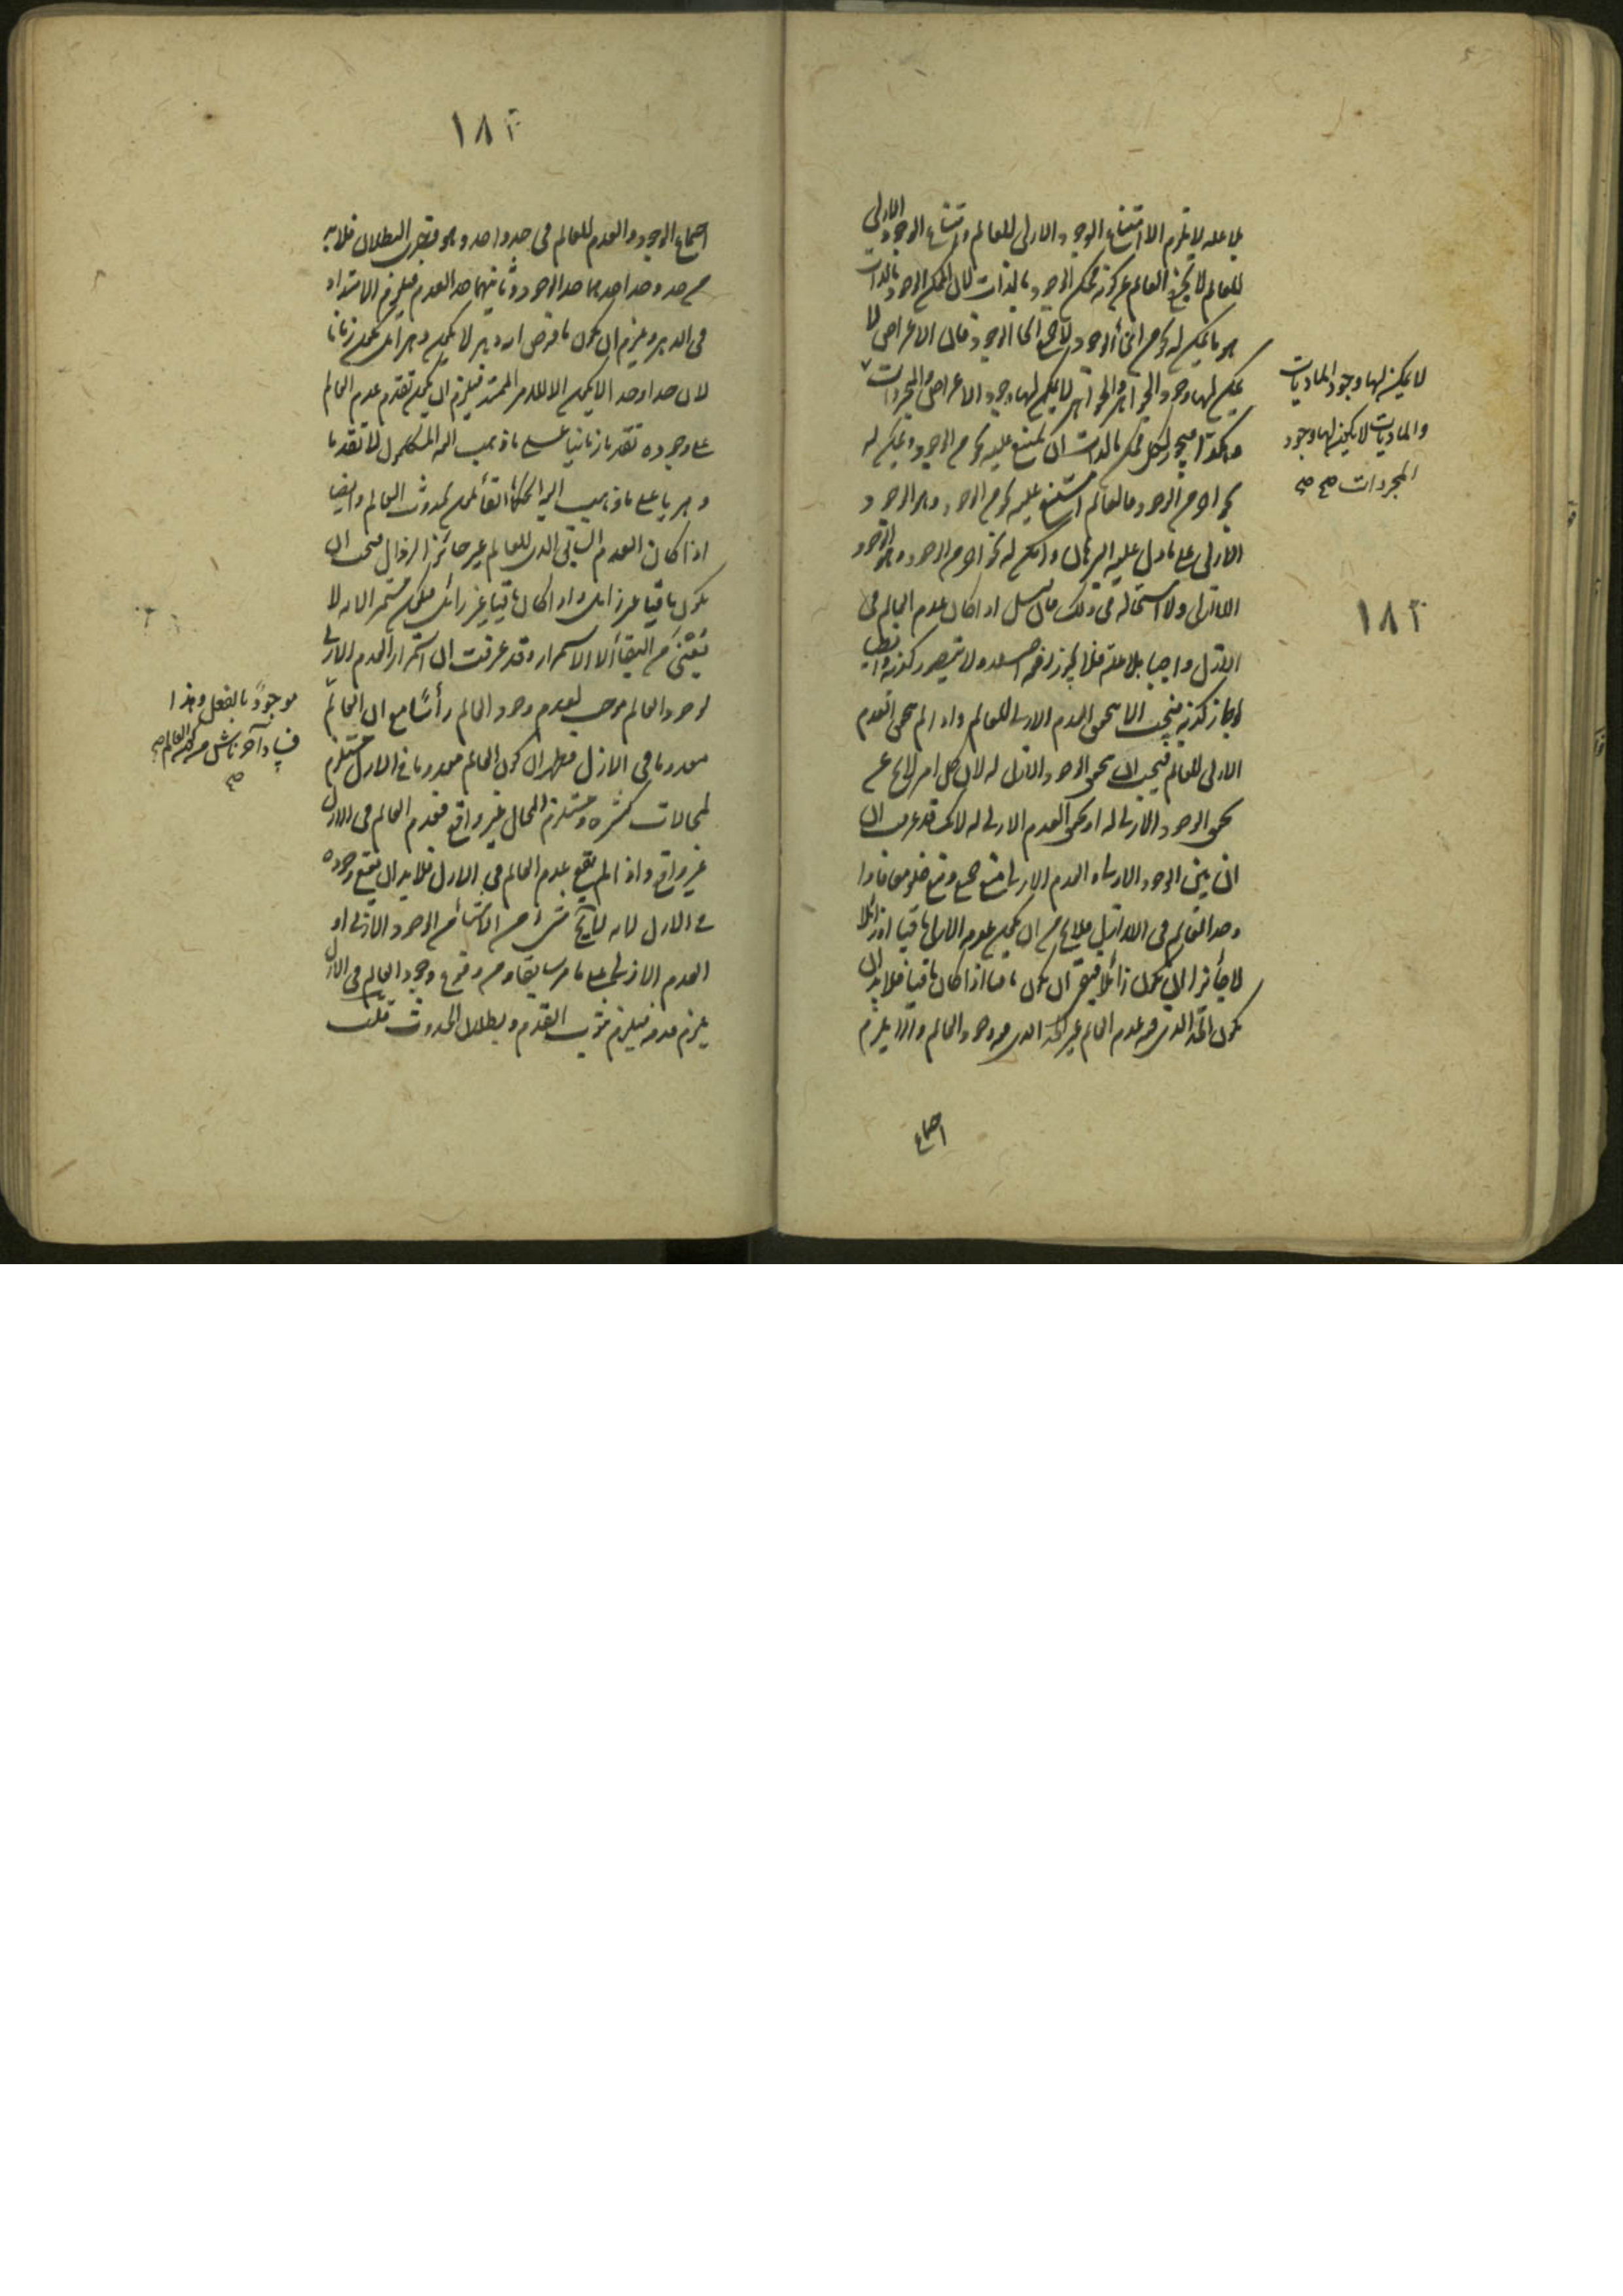 بما عليه لا يلزم الا امتناع الوجود الازلي للعالم وامتناع الوجود الازلي
للعالم لا يخرج العالم عن كونه ممكن الوجود بالذات لان الممكن الوجود بالذات
هو ما يمكن له نحو من انحاء الوجود لا جميع انحاء الوجود فان الاعراض لا
يمكن لها وجود الجواهر والجواهر لا يمكن لها وجود الاعراض والمجردات
لا يمكن لها وجود الماديات
والماديات لا يمكن لها وجود
المجردات صح صح
وهكذا فيجوز لكل ممكن بالذات ان يمتنع عليه نحو من الوجود ويمكن له
نحو اخر من الوجود فالعالم امتنع عليه نحو من الوجود وهو الوجود
الازلي على ما دل عليه البرهان وامكن له نحو اخر من الوجود وهو الوجود
اللاازلي ولا استحالة في ذلك فان قيل اذا كان عدم العالم في
الازل واجبا بلا علة فلا يجوز رفعه لا يتصور كذبه والا
لجاز كذبه فيجب الا يتحقق العدم الازلي للعالم واذا لم يتحقق العدم
الازلي للعالم فيجب ان يتحقق الوجود الازلي له لان كل امر لا يخ عن
تحقق الوجود الازلي له او تحقق العدم الازلي له لانك قد عرفت ان
ان بين الوجود الازلي والعدم الازلي منع جمع ومنع خلو معا فاذا
وجد العالم في اللاازل فلا يخ من ان يكون عدمه الازلي باقيا او زائلا
لا جائز ان يكون زائلا فبقي ان يكون باقيا اذا كان باقيا فلا بد ان
يكون الحد الذي هو عدم العالم غير الحد الذي هو وجود العالم والا يلزم
اجتماع
١٨٢
١٨٢
اجتماع الوجود والعدم للعالم في حد واحد وهو بديهي البطلان فلا بد
من حد وحد احدهما حد الوجود وثانيهما حد العدم فيلزم الامتداد
في الدهر ويلزم ان يكون ما فرض انه دهر لا يكون دهرا بل يكون زمانا
لان حدا وحدا لا يكون الا للامر الممتد فيلزم ان يكون تقدم عدم العالم
على وجوده تقدما زمانيا على ما ذهب اليه المتكلمون لا تقدما
دهريا على ما ذهب اليه الحكماء القائلون بحدوث العالم وايضا
اذا كان العدم السابق الذي للعالم غير جائز الزوال فيجب ان
يكون باقيا غير زائل واذا كان باقيا غير زائل فيكون مستمرا لانه لا
يعني من البقاء الا الاستمرار وقد عرفت ان استمرار العدم الازلي
لوجود العالم موجب لعدم وجود العالم رأسا مع ان العالم
موجود بالفعل وهذا
فساد آخر ناش من كون العالم صح
صح
معدوما في الازل فظهر ان كون العالم معدوما في الازل مستلزم
لمحالات كثيرة ومستلزم المحال غير واقع فعدم العالم في الازل
غير واقع واذا لم يقع عدم العالم في الازل فلا بد ان يقع وجوده
في الازل لانه لا يخ شيء من الاشياء من الوجود الازلي او
العدم الازلي على ما مر سابقا ومن وقوع وجود العالم في الازل
يلزم قدمه فيلزم ثبوت القدم وبطلان الحدوث قلت